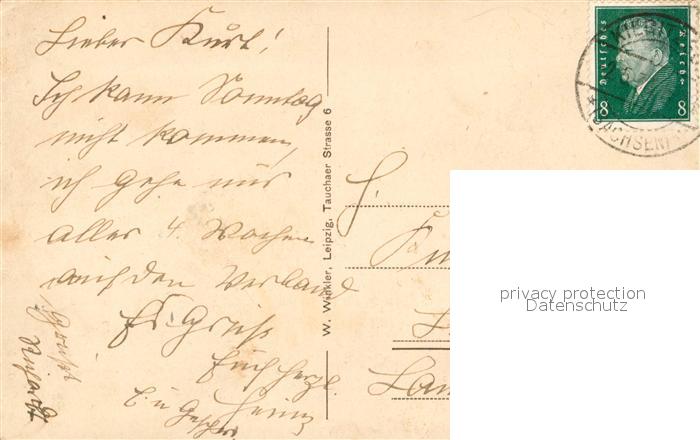 Lieber Kurt!
Ich kann Sonntag
nicht kommen,
ich gehe nur
aller 4 Wochen
auf den Verband
Es Grüßt
Euch herzl.
Heinz
W. Winkler, Leipzig, Tauchaer Strasse 6
Deutsches Reich
8 8
SACHSEN
H.
privacy protection
Datenschutz